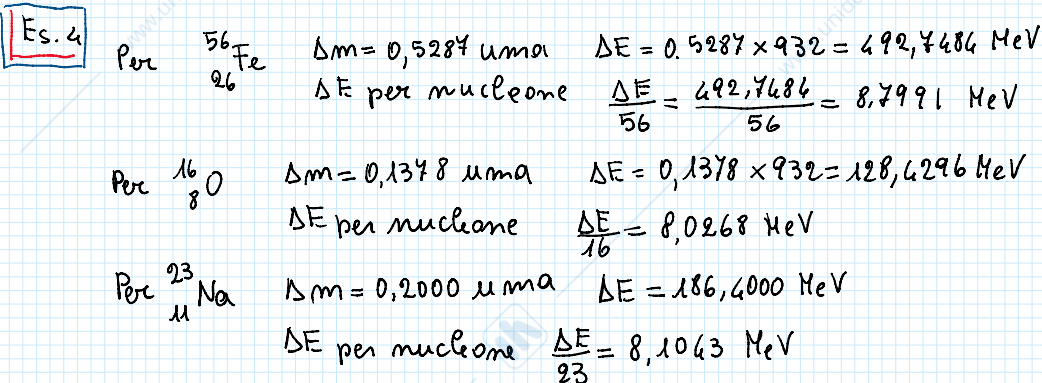 Es. 4
Per ⁵⁶₂₆Fe Δm = 0,5287 uma ΔE = 0.5287 × 932 = 492,7484 MeV
ΔE per nucleone ΔE/56 = 492,7484/56 = 8,7991 MeV
Per ¹⁶₈O Δm = 0,1378 uma ΔE = 0,1378 × 932 = 128,4296 MeV
ΔE per nucleone ΔE/16 = 8,0268 MeV
Per ²³₁₁Na Δm = 0,2000 uma ΔE = 186,4000 MeV
ΔE per nucleone ΔE/23 = 8,1043 MeV